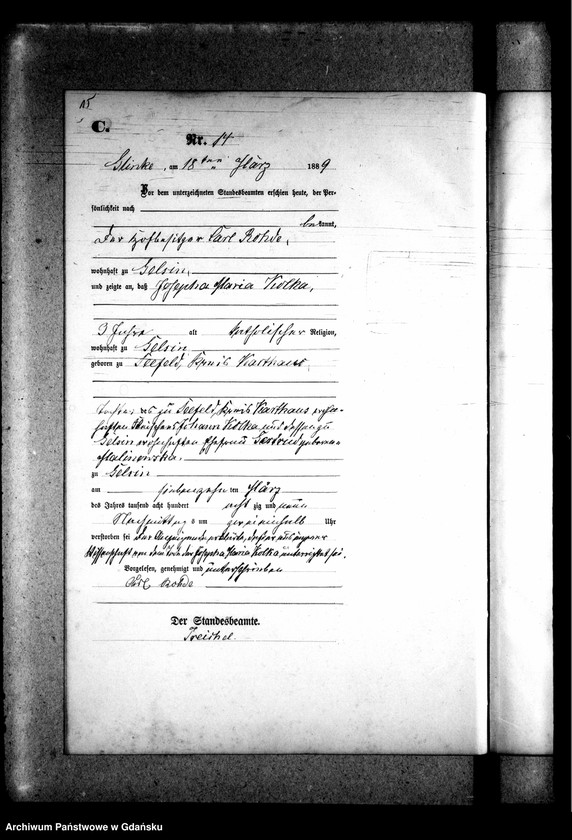 15
C.
Nr. 14
Glincke, am 18 ten März 1889
Vor dem unterzeichneten Standesbeamten erschien heute, der Per-
sönlichkeit nach
bekannt,
der Hofbesitzer Carl Rohde,
wohnhaft zu Golsin,
und zeigte an, daß Josepha Maria Kolka,
3 Jahre alt katholischer Religion,
wohnhaft zu Golsin
geboren zu Seefeld, Kreis Karthaus
Tochter des zu Seefeld, Kreis Karthaus
Johann Kolka und dessen zu
Golsin Ehefrau Gertrud geborene
Malinowska.
zu Golsin
am siebenzehn ten März
des Jahres tausend acht hundert acht zig und neun
Nachmittags um zwei einhalb Uhr
verstorben sei der Anzeigende erklärte, daß er aus eigener
Wissenschaft von dem Tode der Josepha Maria Kolka unterrichtet sei.
Vorgelesen, genehmigt und unterschrieben
Karl Rohde
Der Standesbeamte.
Treichel.
Archiwum Państwowe w Gdańsku